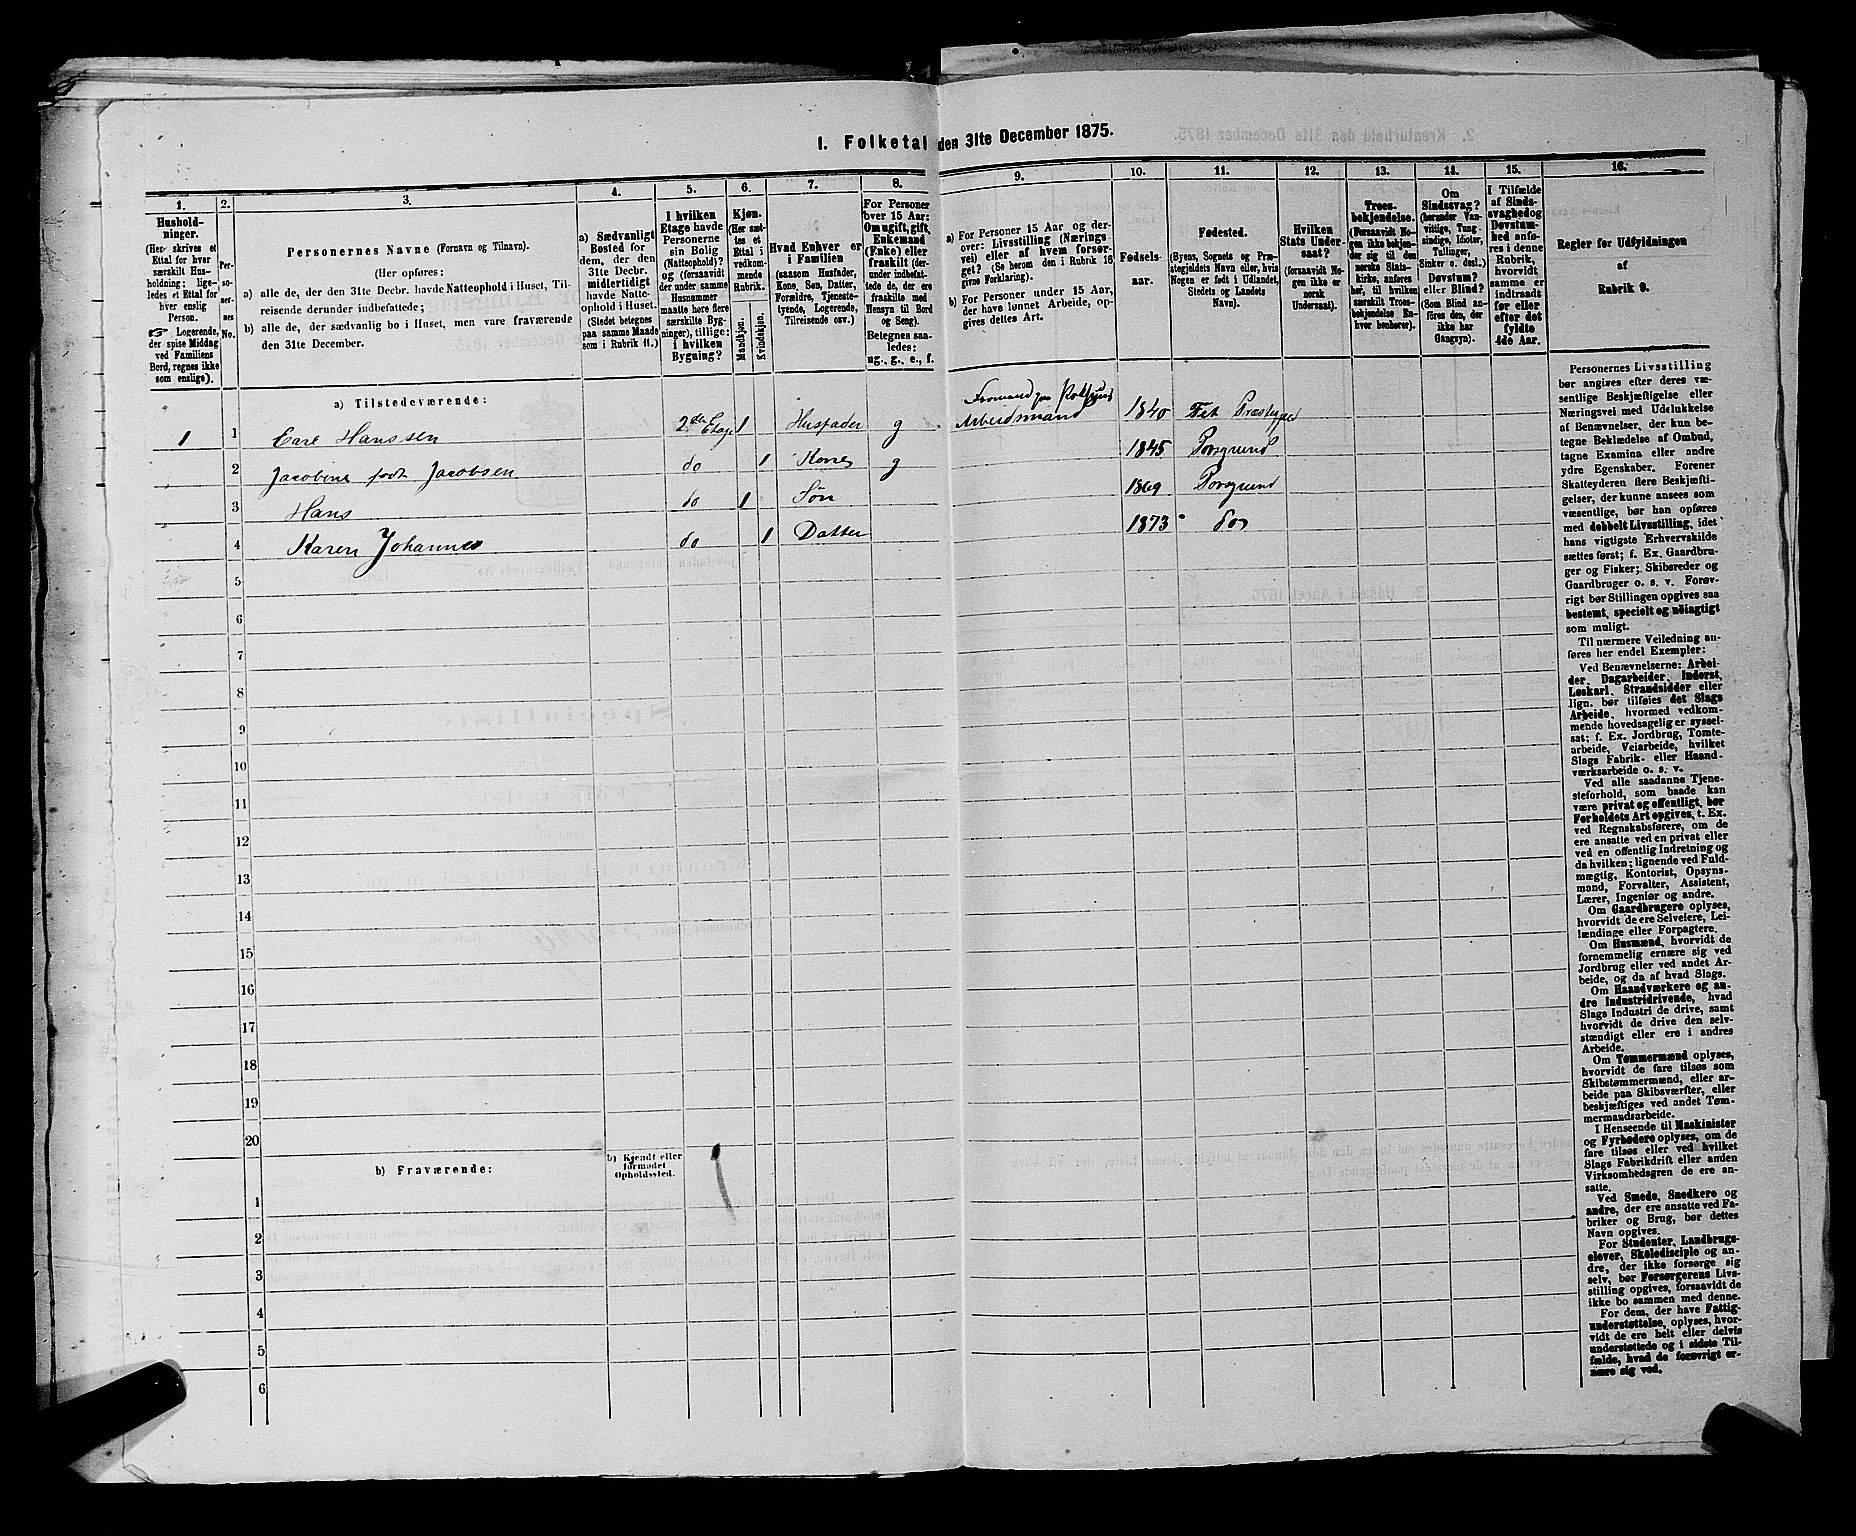 I. Folketal den 31te December 1875.
1.
2.
3.
4.
5.
6.
7.
8.
9.
10.
11.
12.
13.
14.
15.
16.
Husholdninger.
(Her skrives et
Ettal for hver
særskilt Husholdning;
ligeledes et Ettal for
hver enslig
Person.
☞ Logerende,
der spise Middag
ved Familiens
Bord, regnes ikke
som enslige).
Personernes
No.
Personernes Navne (Fornavn og Tilnavn).
(Her opføres:
a) alle de, der den 31te Decbr. havde Natteophold i Huset, Tilreisende derunder indbefattede;
b) alle de, der sædvanlig bo i Huset, men vare fraværende
den 31te December.
a) Sædvanligt
Bosted for
dem, der den
31te Decbr.
midlertidigt
havde Natteophold
i Huset.
(Stedet betegnes
paa samme Maade
som i Rubrik 11.)
I hvilken
Etage havde
Personerne
sin Bolig
(Natteophold)?
og (forsaavidt
der under samme
Husnummer
maatte høre flere
særskilte Bygninger),
tillige:
i hvilken
Bygning?
Kjøn.
(Her sættes
et
Ettal i
vedkommende
Rubrik.
Mandkjøn.
Kvindekjøn.
Hvad Enhver er
i Familien
(saasom Husfader,
Kone, Søn, Datter,
Forældre, Tjenestetyende,
Logerende,
Tilreisende osv.)
For Personer
over 15 Aar:
Om ugift, gift,
Enkemand
(Enke) eller
fraskilt (derunder
indbefattede
de, der ere
fraskilte med
Hensyn til Bord
og Seng).
Betegnes saaledes:
ug., g., e., f.
a) For Personer 15 Aar og derover:
Livsstilling (Næringsvei)
eller af hvem forsørget?
(Se herom den i Rubrik 16
givne Forklaring).
b) For Personer under 15 Aar,
der have lønnet Arbeide, opgives
dettes Art.
Fødselsaar.
Fødested.
(Byens, Sognets og Præstegjeldets
Navn eller, hvis
Nogen er født i Udlandet,
Stedets og Landets
Navn).
Hvilken
Stats Undersaat?
(forsaavidt Nogen
ikke er
norsk
Undersaat).
Troesbekjendelse.
(Forsaavidt Nogen
ikke bekjender
sig til den
norske Statskirke,
anføres
her, til hvilken
særskilt Troesbekjendelse
Enhver
henhører).
Om
Sindssvag?
(herunder Vanvittige,
Tungsindige,
Idioter,
Tullinger,
Sinker o. desl.)
Døvstum?
eller Blind?
(Som Blind anføres
den, der
ikke har
Gangsyn).
I Tilfælde
af Sindssvaghed
og
Døvstumhed
anføres
i denne
Rubrik,
hvorvidt
samme er
indtraadt
før eller
efter det
fyldte
4de Aar.
Regler for Udfyldningen
af
Rubrik 9.
a) Tilstedeværende:
1 1 Carl Hanssen 2den Etage 1 Husfader g Arbeidsmand 1840 Præstegjed
2 Jacobine født Jacobsen do 1 Kone g 1845 Porsgrund
3 Hans do 1 Søn 1869 Porsgrund
4 Karen Johanne do 1 Datter 1873 do
5
6
7
8
9
10
11
12
13
14
15
16
17
18
19
20
b) Fraværende:
b) Kjendt eller
formodet
Opholdssted.
1
2
3
4
5
6
Personernes Livsstilling
bør angives efter deres væsentlige
Beskjæftigelse eller
Næringsvei med Udelukkelse
af Benævnelser, der kun betegne
Beklædelse af Ombud,
tagne Examina eller andre
ydre Egenskaber. Forener
Skatteyderen flere Beskjæftigelser,
der kunne ansees som
væsentlige, bør han opføres
med dobbelt Livsstilling, idet
hans vigtigste Erhvervskilde
sættes først; f. Ex. Gaardbruger
og Fisker; Skibsreder og
Gaardbruger o. s. v. Forøvrigt
bør Stillingen opgives saa
bestemt, specielt og nøiagtigt
som muligt.
Til nærmere Veiledning anføres
her endel Exempler:
Ved Benævnelserne: Arbeider,
Dagarbeider, Inderst,
Løskarl, Strandsidder eller
lign. bør tilføies det Slags
Arbeide, hvormed vedkommende
hovedsagelig er sysselsat;
f. Ex. Jordbrug, Tomtearbeide,
Veiarbeide, hvilket
Slags Fabrik- eller Haandværksarbeide
o. s. v.
Ved alle saadanne Tjenesteforhold,
som baade kan
være privat og offentligt, bør
Forholdets Art opgives, t. Ex.
ved Regnskabsførere, om de
ere ansatte ved en privat eller
ved en offentlig Indretning og
da hvilken; lignende ved Fuldmægtig,
Kontorist, Opsynsmand,
Forvalter, Assistent,
Lærer, Ingeniør og andre.
Om Gaardbrugere oplyses,
hvorvidt de ere Selveiere, Leilændinge
eller Forpagtere.
Om Husmænd, hvorvidt de
fornemmelig ernære sig ved
Jordbrug eller ved andet Arbeide,
og da af hvad Slags.
Om Haandværkere og andre
Industridrivende, hvad
Slags Industri de drive, samt
hvorvidt de drive den selvstændigt
eller ere i andres
Arbeide.
Om Tømmermænd oplyses,
hvorvidt de fare tilsøs som
Skibstømmermænd, eller arbeide
paa Skibsværfter, eller
beskjæftiges ved andet Tømmermandsarbeide.
I Henseende til Maskinister
og Fyrbødere oplyses, om de
fare tilsøs eller ved hvilket
Slags Fabrikdrift eller anden
Virksomhedsgren de ere ansatte.
Ved Smede, Snedkere og
andre, der ere ansatte ved Fabriker
og Brug, bør dettes
Navn opgives.
For Studenter, Landbrugselever,
Skoledisciple og andre,
der ikke forsørge sig
selv, bør Forsørgerens Livsstilling
opgives, forsaavidt de
ikke bo sammen med denne.
For dem, der have Fattigunderstøttelse,
oplyses, hvorvidt
de ere helt eller delvis
understøttede og i sidste Tilfælde,
hvad de forøvrigt ernære
sig ved.